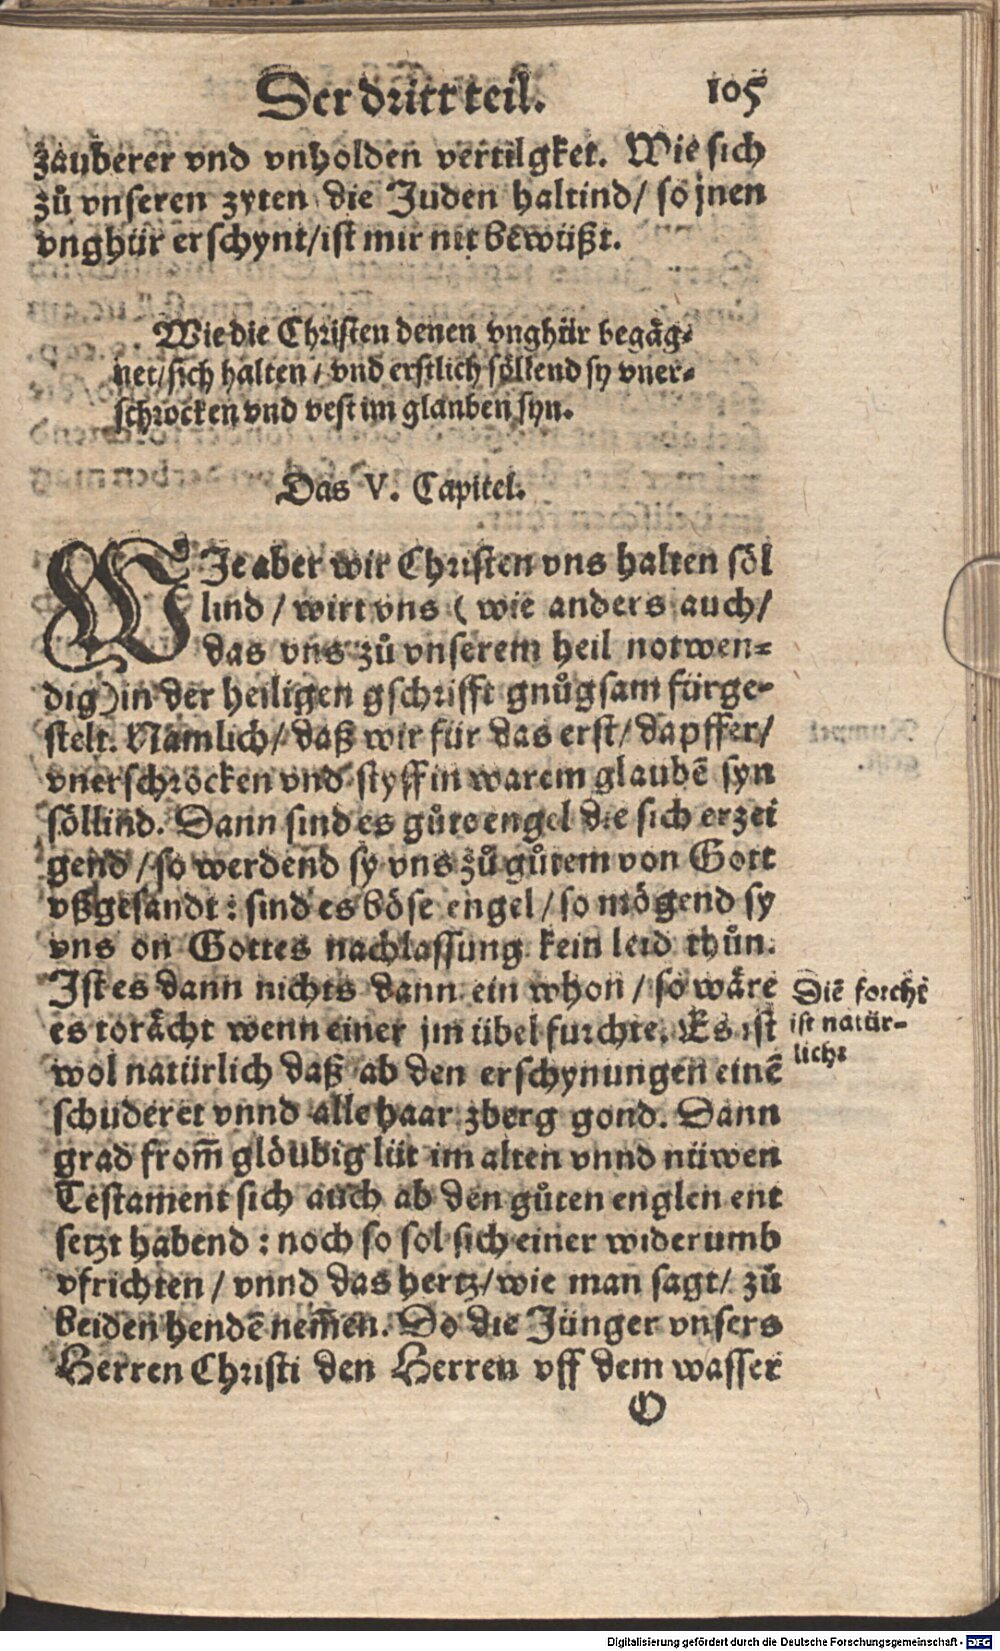 Der dritt teil. 105
zauberer vnd vnholden vertilgket. Wie sich
zů vnseren zyten die Juden haltind/ so jnen
vnghür erschynt/ist mir nit bewüßt.
Wie die Christen denen vnghür begäg-
net/sich halten/ vnd erstlich söllend sy vner-
schrocken vnd vest im glauben syn.
Das V. Capitel.
WJe aber wir Christen vns halten söl
lind/ wirt vns (wie anders auch/
das vns zů vnserem heil notwen-
dig) in der heiligen gschrifft gnůgsam fürge-
stelt. Namlich/ daß wir für das erst/ dapffer/
vnerschrocken vnd styff in warem glaubē syn
söllind. Dann sind es gůte engel die sich erzei
gend/ so werdend sy vns zů gůtem von Gott
vßgesandt: sind es böse engel/ so mögend sy
vns on Gottes nachlassung kein leid thůn.
Ist es dann nichts dann ein whon/ so wäre
es torächt wenn einer jm übel furchte. Es ist
wol natürlich daß ab den erschynungen einē
schuderet vnnd alle haar zberg gond. Dann
grad from̄ glöubig lüt im alten vnnd nüwen
Testament sich auch ab den gůten englen ent
setzt habend: noch so sol sich einer widerumb
vfrichten/ vnnd das hertz/wie man sagt/ zů
beiden hendē nem̄en. Do die Jünger vnsers
Herren Christi den Herren vff dem wasser
O
Die forcht
ist natür-
lich:
Digitalisierung gefördert durch die Deutsche Forschungsgemeinschaft - DFG